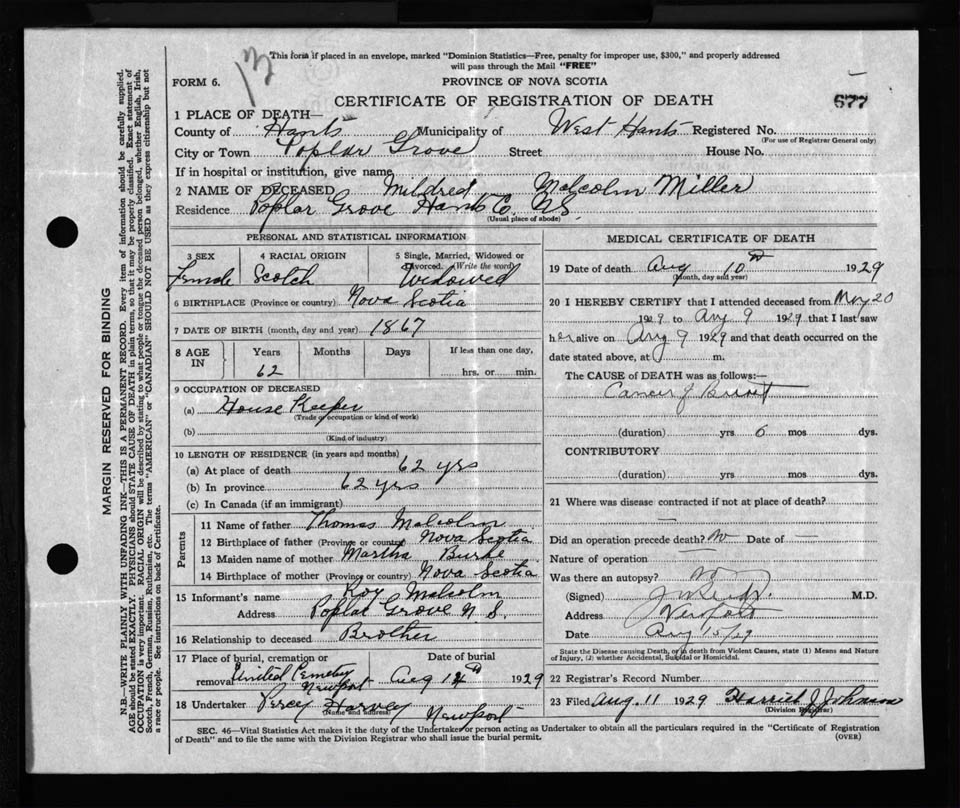 13
This form if placed in an envelope, marked "Dominion Statistics—Free, penalty for improper use, $300," and properly addressed
will pass through the Mail "FREE"
FORM 6.
PROVINCE OF NOVA SCOTIA
CERTIFICATE OF REGISTRATION OF DEATH
677
1 PLACE OF DEATH—
County of Hants Municipality of West Hants Registered No.
(For use of Registrar General only)
City or Town Poplar Grove Street House No.
If in hospital or institution, give name
2 NAME OF DECEASED Mildred Malcolm Miller
Residence Poplar Grove Hants Co. N.S.
(Usual place of abode)
PERSONAL AND STATISTICAL INFORMATION
3 SEX 4 RACIAL ORIGIN 5 Single, Married, Widowed or
Divorced. (Write the word)
Female Scotch Widowed
6 BIRTHPLACE (Province or country) Nova Scotia
7 DATE OF BIRTH (month, day and year) 1867
8 AGE IN Years Months Days If less than one day,
62 hrs. or min.
9 OCCUPATION OF DECEASED
(a) House Keeper
(Trade or occupation or kind of work)
(b)
(Kind of industry)
10 LENGTH OF RESIDENCE (in years and months)
(a) At place of death 62 yrs
(b) In province 62 yrs
(c) In Canada (if an immigrant)
Parents
11 Name of father Thomas Malcolm
12 Birthplace of father (Province or country) Nova Scotia
13 Maiden name of mother Martha Burke
14 Birthplace of mother (Province or country) Nova Scotia
15 Informant's name Roy Malcolm
Address Poplar Grove N S.
16 Relationship to deceased Brother
17 Place of burial, cremation or Date of burial
removal United Cemetery Newport Aug 12th 1929
18 Undertaker Percy Harvey Newport
(Name and address)
MEDICAL CERTIFICATE OF DEATH
19 Date of death Aug 10th 1929
(Month, day and year)
20 I HEREBY CERTIFY that I attended deceased from May 20
1929 to Aug 9 1929 that I last saw
her alive on Aug 9 1929 and that death occurred on the
date stated above, at m.
The CAUSE of DEATH was as follows:—
Cancer of Breast
(duration) yrs 6 mos dys.
CONTRIBUTORY
(duration) yrs mos dys.
21 Where was disease contracted if not at place of death?
—
Did an operation precede death? No Date of —
Nature of operation —
Was there an autopsy? no
(Signed) M.D.
Address Newport
Date Aug 15/29
State the Disease causing Death, or in death from Violent Causes, state (1) Means and
Nature of Injury, (2) whether Accidental, Suicidal or Homicidal.
22 Registrar's Record Number
23 Filed Aug. 11 1929 Harriet J Johnson
(Division Registrar)
SEC. 46—Vital Statistics Act makes it the duty of the Undertaker or person acting as Undertaker to obtain all the particulars required in the "Certificate of Registration
of Death" and to file the same with the Division Registrar who shall issue the burial permit.
(OVER)
MARGIN RESERVED FOR BINDING
N.B.—WRITE PLAINLY WITH UNFADING INK—THIS IS A PERMANENT RECORD. Every item of information should be carefully supplied.
AGE should be stated EXACTLY. PHYSICIANS should STATE CAUSE OF DEATH in plain terms, so that it may be properly classified. Exact statement of
OCCUPATION is very important. RACIAL ORIGIN will be described by stating to what people or tongue the deceased person belonged, whether English, Irish,
Scotch, French, German, Russian, Ruthenian, etc. The terms "AMERICAN" or "CANADIAN" SHOULD NOT BE USED as they express citizenship but not
a race or people. See instructions on back of Certificate.